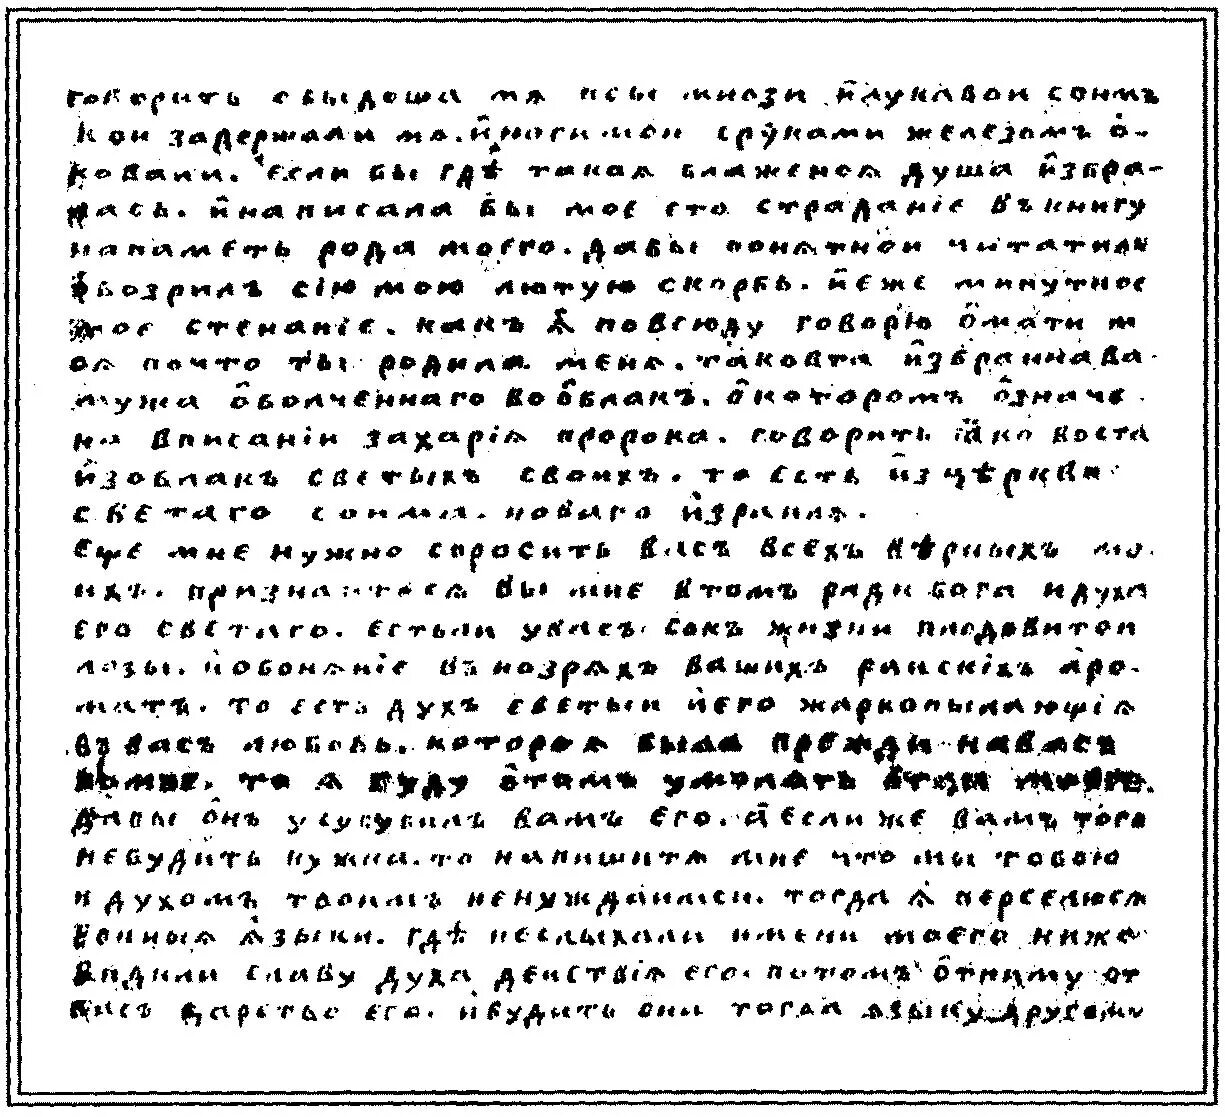 говорить обыдоша мя псы мнози и҆лукавои сонмъ
кои задержали мо. и҆ноги мои сруками железомъ о҆-
ковали. если бы гдѣ такая блаженоя душа и҆збра-
лась. и҆написала бы мое сто страданіе въкнигу
напаметь рода моего. дабы понятнои читатиль
обозрилъ сію мою лютую скорбь. и҆еже минутное
мое стенаніе. какъ ѧ҆ повсюду говорю о҆мати м
оя почто ты родила меня. таковта и҆збраннава
мужа о҆болченнаго воо҆блакъ. о҆которомъ о҆значе
на вписаніи захарія пророка. говорить ꙗ҆ко воста
и҆зоблакъ светыхъ своихъ. то есть и҆зчѣркви
светаго сонма. новаго и҆зраиля.
еще мне нужно спросить васъ всехъ вѣрныхъ мо.
ихъ. признаитеся вы мне втомъ ради бога идуха
его светаго. естьли увасъ сокъ жизни плодовитои
лозы. и҆обоняніе въноздряхъ вашихъ раискіхъ а҆ро-
матъ. то есть духъ светыи и҆его жаркопылающія
въвасъ любовь. которая была прежди навасъ
комне. то я буду о҆томъ умолять
дабы о҆нъ усугубилъ вамъ его. а҆если же вамъ того
небудить нужна. то напишитя мне что мы тобою
идухомъ твоимъ ненуждаимси. тогда ѧ҆ перселюся
ѧ҆зыки. гдѣ неслыхали имени моего ниже
видили славу духа деиствія его. потомъ о҆тниму от
васъ царство его. и҆будить они тогда языку другому